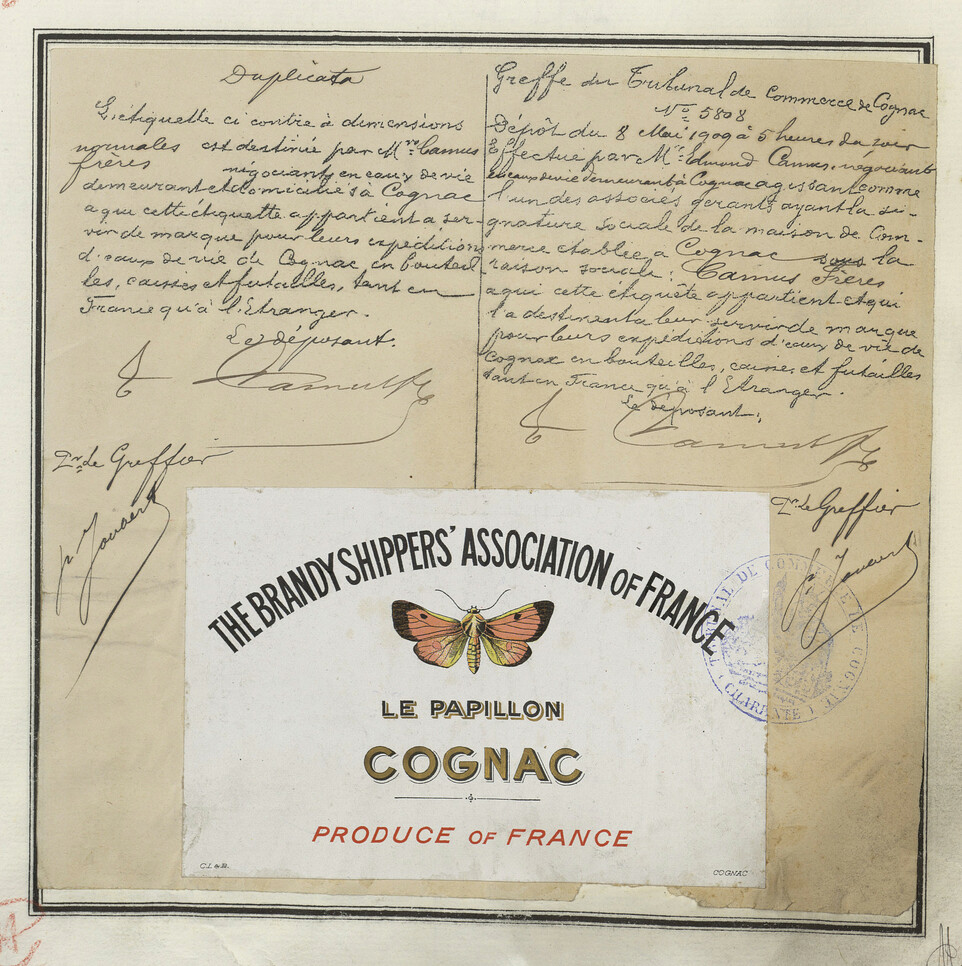 Duplicata
L'étiquette ci contre à dimensions
normales est destinée par Mrs Camus
frères négociants en eaux de vie
demeurant et domiciliés à Cognac
a qui cette étiquette appartient a ser-
vir de marque pour leurs expéditions
d'eaux de vie de Cognac, en bouteil
les, caisses et futailles, tant en
France qu'à l'Etranger.
Le déposant.
Camus
Pr. le Greffier
Greffe du Tribunal de Commerce de Cognac
No 5808
Dépôt du 8 Mai 1909 à 5 heures du soir
Effectué par Mr Edmond Camus, négociant
en eaux de vie demeurant à Cognac agissant comme
l'un des associés gérants ayant la si-
gnature sociale de la maison de Com-
merce établie à Cognac sous la
raison sociale: Camus Frères
a qui cette étiquète appartient et qui
l'a destinent a leur servir de marque
pour leurs expéditions d'eaux de vie de
Cognac en bouteilles, caisses et futailles
tant en France qu'à l'Etranger.
Le déposant:
Camus
Pr. le Greffier
THE BRANDY SHIPPERS' ASSOCIATION OF FRANCE
LE PAPILLON
COGNAC
PRODUCE OF FRANCE
COGNAC
TRIBUNAL DE COMMERCE DE COGNAC
(CHARENTE)